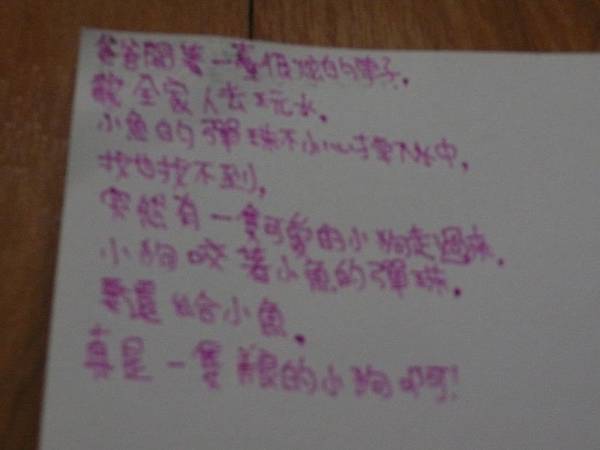 爸爸開著一臺很炫的車子,
載全家人去玩水,
小魚的彈珠不小心掉入水中,
找也找不到,
突然有一隻可愛的小狗走過來,
小狗咬著小魚的彈珠,
要還給小魚。
真是一隻 的小狗啊!